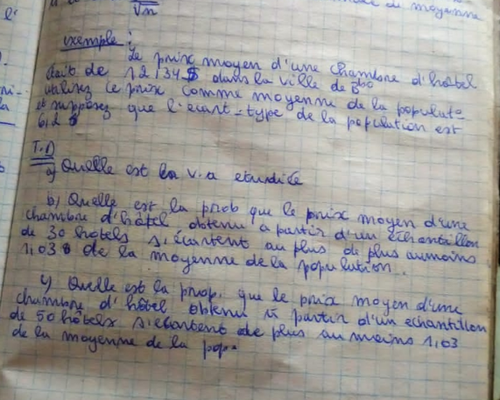 de moyenne
√n
exemple :
Le prix moyen d'une chambre d'hôtel
était de 12/34$ dans la ville de
utilisez ce prix comme moyenne de la populat°
et supposez que l'écart-type de la population est
6,2 $
T.D
a) Quelle est la v.a etudiée
b) Quelle est la prob que le prix moyen d'une
chambre d'hôtel obtenu a partir d'un échantillon
de 30 hôtels s'écartent au plus de plus au moins
1,03 $ de la moyenne de la population..
c) Quelle est la prop. que le prix moyen d'une
chambre d'hôtel obtenu à partir d'un echantillon
de 50 hôtels s'ecartent de plus au moins 1,03
de la moyenne de la pop.